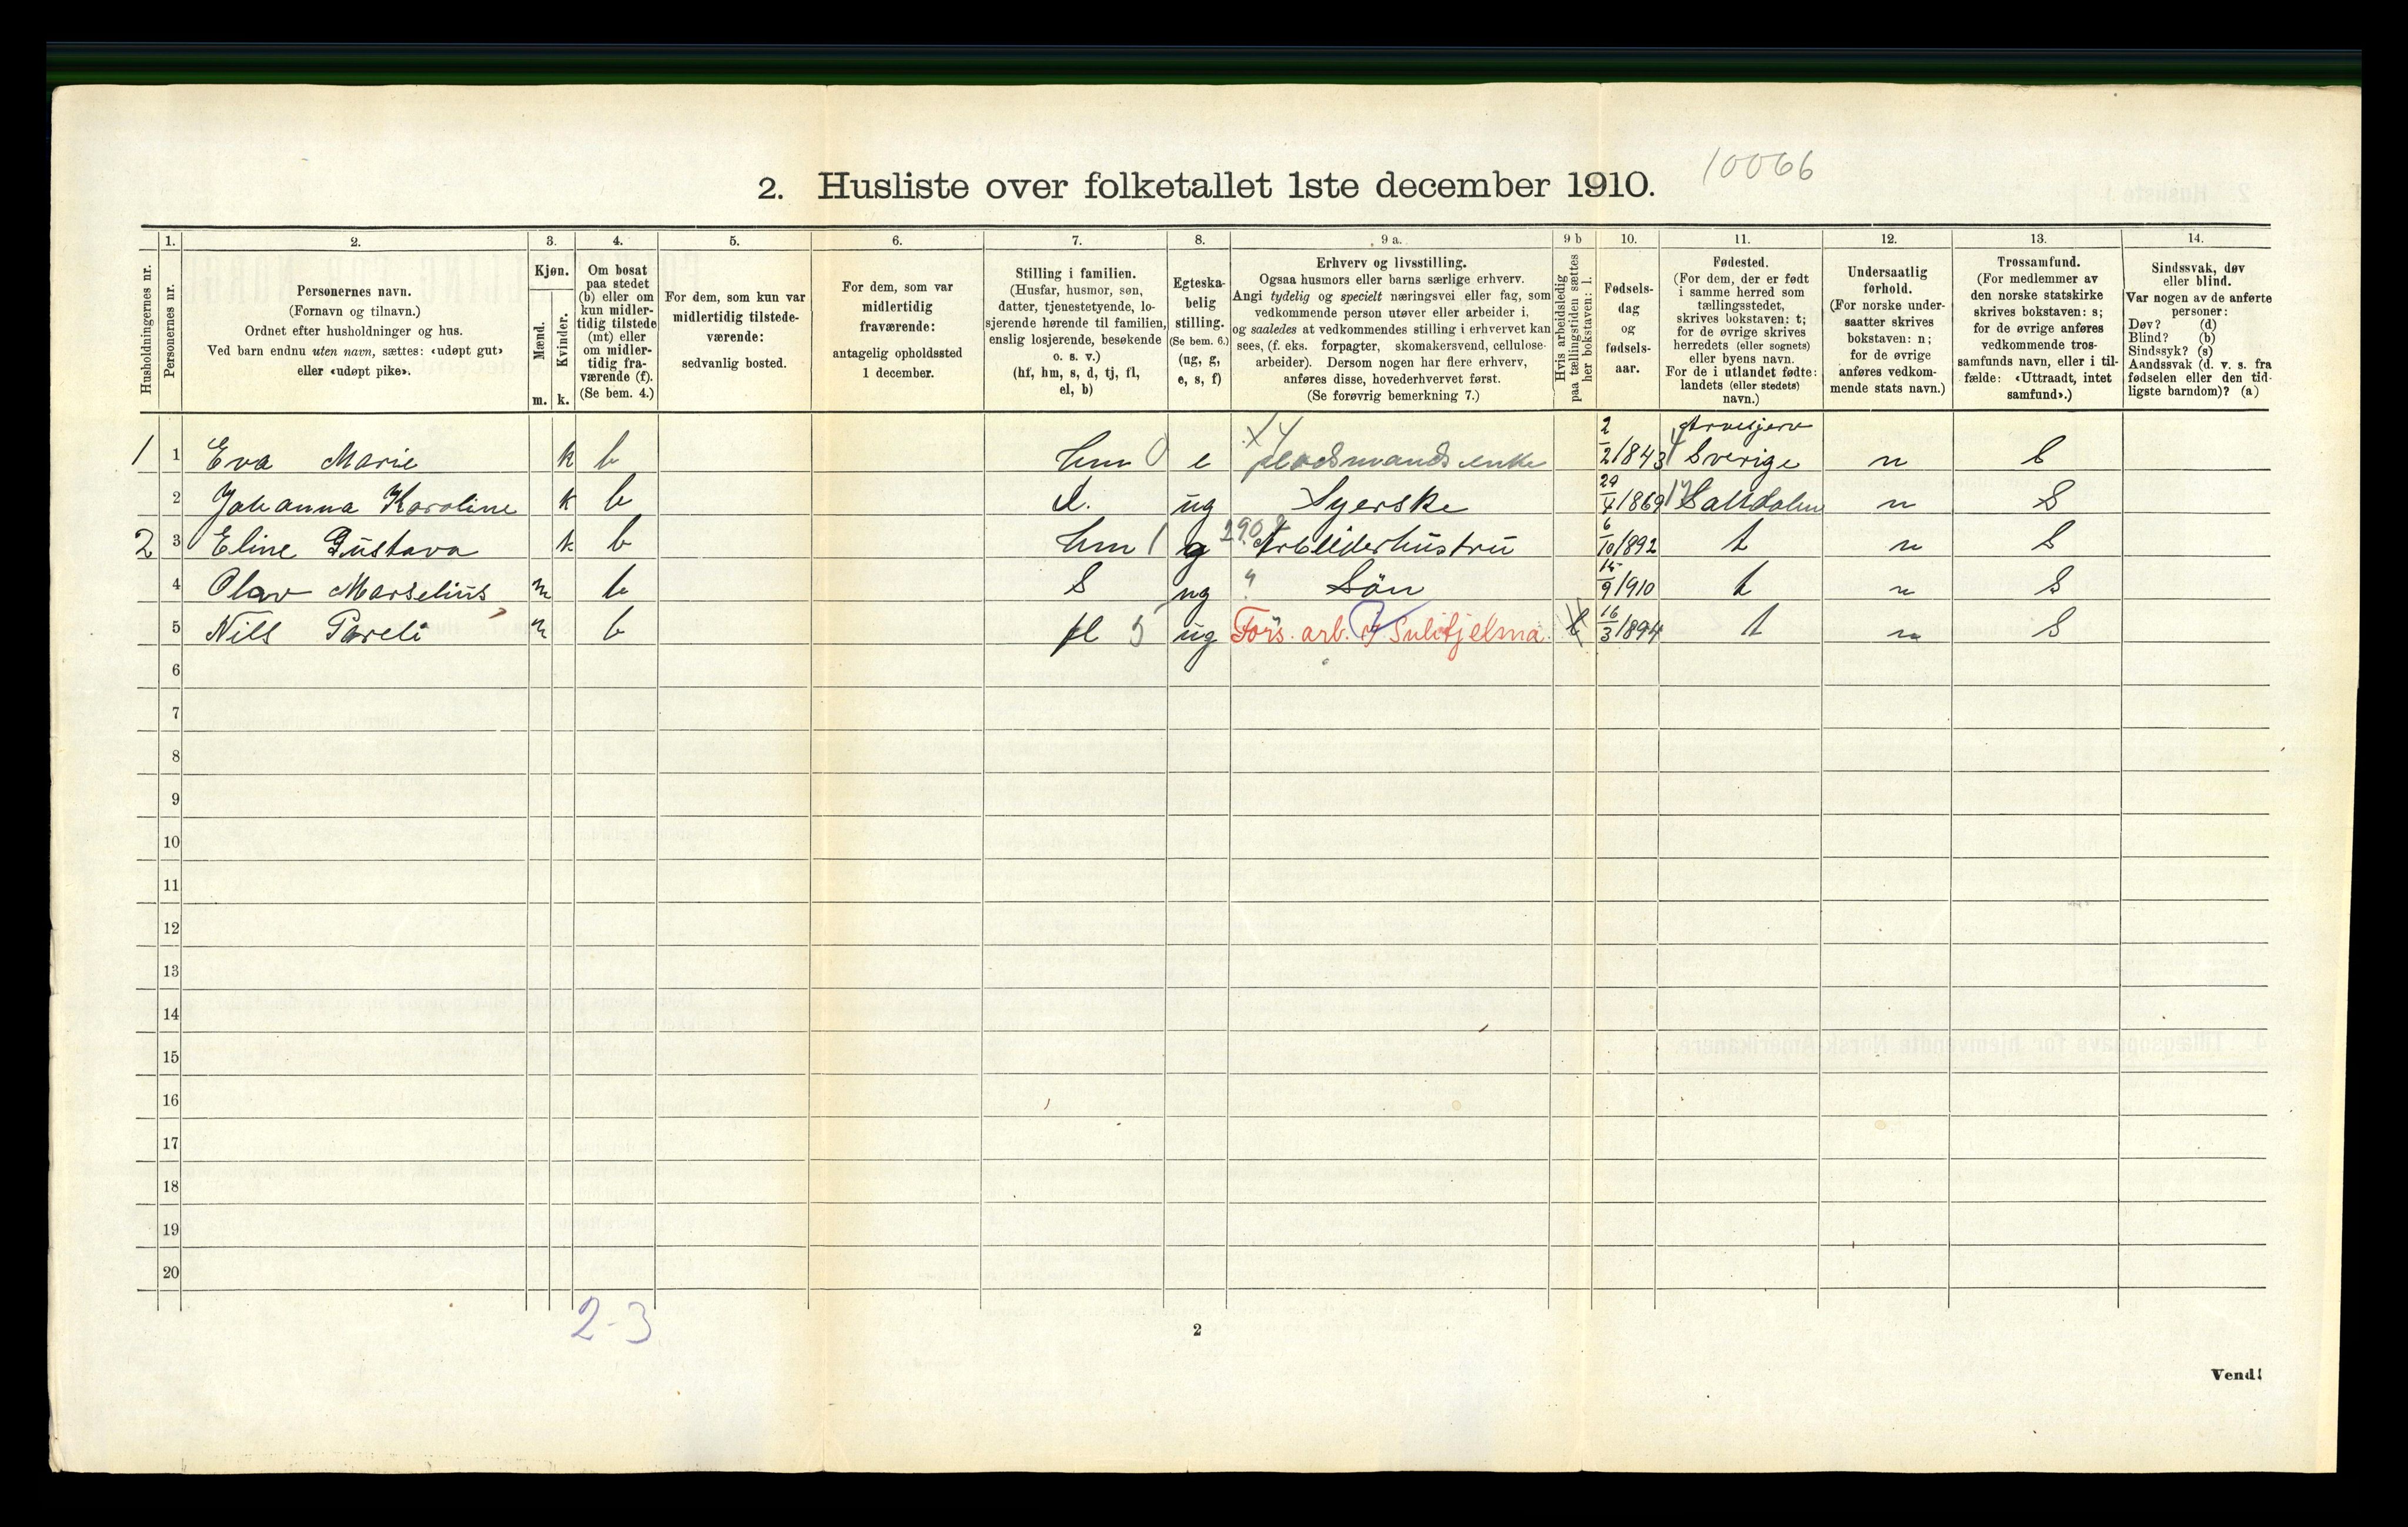 10066
2. Husliste over folketallet 1ste december 1910.
Husholdningernes nr.
1.
Personernes nr.
2.
Personernes navn.
(Fornavn og tilnavn.)
Ordnet efter husholdninger og hus.
Ved barn endnu uten navn, sættes: «udøpt gut»
eller «udøpt pike».
3.
Kjøn.
Mænd.
Kvinder.
m. k.
4.
Om bosat
paa stedet
(b) eller om
kun midler-
tidig tilstede
(mt) eller
om midler-
tidig fra-
værende (f).
(Se bem. 4.)
5.
For dem, som kun var
midlertidig tilstede-
værende:
sedvanlig bosted.
6.
For dem, som var
midlertidig
fraværende:
antagelig opholdssted
1 december.
7.
Stilling i familien.
(Husfar, husmor, søn,
datter, tjenestetyende, lo-
sjerende hørende til familien,
enslig losjerende, besøkende
o. s. v.)
(hf, hm, s, d, tj, fl,
el, b)
8.
Egteska-
belig
stilling.
(Se bem. 6.)
(ug, g,
e, s, f)
9 a.
Erhverv og livsstilling.
Ogsaa husmors eller barns særlige erhverv.
Angi tydelig og specielt næringsvei eller fag, som
vedkommende person utøver eller arbeider i,
og saaledes at vedkommendes stilling i erhvervet kan
sees, (f. eks. forpagter, skomakersvend, cellulose-
arbeider). Dersom nogen har flere erhverv,
anføres disse, hovederhvervet først.
(Se forøvrig bemerkning 7.)
9 b
Hvis arbeidsledig
paa tællingstiden sættes
her bokstaven: l.
10.
Fødsels-
dag
og
fødsels-
aar.
11.
Fødested.
(For dem, der er født
i samme herred som
tællingsstedet,
skrives bokstaven: t;
for de øvrige skrives
herredets (eller sognets)
eller byens navn.
For de i utlandet fødte:
landets (eller stedets)
navn.)
12.
Undersaatlig
forhold.
(For norske under-
saatter skrives
bokstaven: n;
for de øvrige
anføres vedkom-
mende stats navn.)
13.
Trossamfund.
(For medlemmer av
den norske statskirke
skrives bokstaven: s;
for de øvrige anføres
vedkommende tros-
samfunds navn, eller i til-
fælde: «Uttraadt, intet
samfund».)
14.
Sindssvak, døv
eller blind.
Var nogen av de anførte
personer:
Døv? (d)
Blind? (b)
Sindssyk? (s)
Aandssvak (d. v. s. fra
fødselen eller den tid-
ligste barndom)? (a)
1 1 Eva Marie k b hm 0 e X4 enke 2/2 1843 Sverige n S
2 Johanna Karoline k b d. ug Syerske 29/4 1869 17 Saltdalen n S
2 3 Eline Gustava k b hm 1 g 290 Arbeiderhustru 6/10 1892 t n S
4 Olav Marselius m b S ug " Søn 15/9 1910 t n S
5 Nills Pareli m b fl 5 ug Fors. arb. v Sulitjelma. 16/3 1894 t n S
6
7
8
9
10
11
12
13
14
15
16
17
18
19
20
2-3
2
Vend!